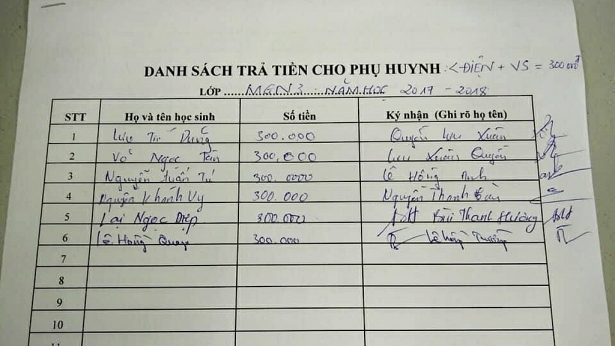 DANH SÁCH TRẢ TIỀN CHO PHỤ HUYNH <ĐIỆN + VS = 300
LỚP ..... MGN3 ... NĂM HỌC 2017 - 2018
STT Họ và tên học sinh Số tiền Ký nhận (Ghi rõ họ tên)
1 Lưu Trí Dũng 300.000 Quyền Lưu Xuân
2 Võ Ngọc Tân 300,000 Lưu Xuân Quyền
3 Nguyễn Tuấn Tú 300.0000 Lê Hồng Anh
4 Nguyễn Khánh Vy 300.000 Nguyễn Thanh
5 Lại Ngọc Diệp 300.000 Bùi Thanh Hường
6 Lê Hồng Quang 300.000 Lê Hồng Trường
7
8
9
10